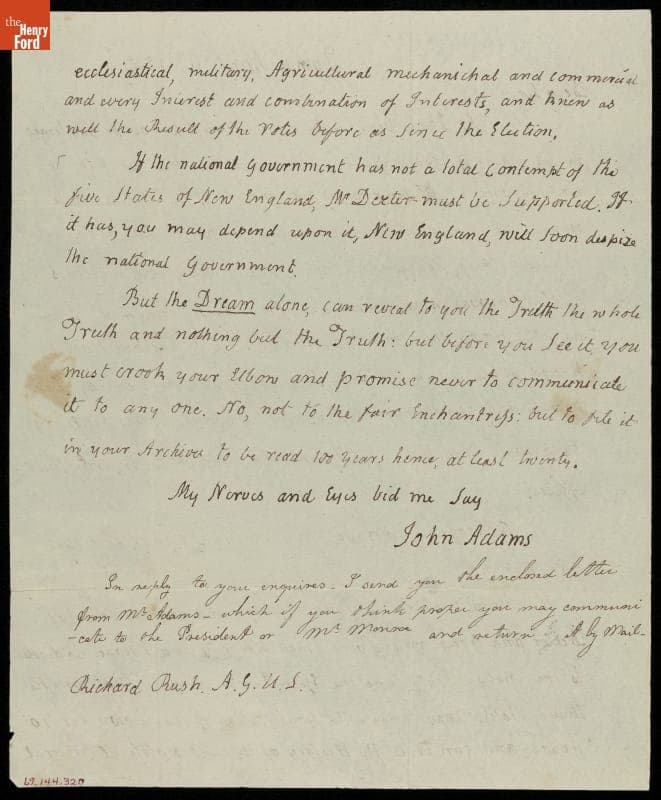 the
Henry
Ford
ecclesiastical, military, Agricultural mechanichal and commercial
and every Interest and combination of Interests, and knew as
well the Result of the Votes before as Since the Election.
If the national Government has not a total Contempt of the
five States of New England, Mr Dexter must be Supported. If
it has, you may depend upon it, New England, will soon despize
the national Government.
But the Dream alone, can reveal to you the Truth the whole
Truth and nothing but the Truth: but before you See it, you
must crook your Elbow and promise never to communicate
it to any one. No, not to the fair Enchantress: but to file it
in your Archives to be read 100 years hence, at least twenty.
My Nerves and Eyes bid me Say
John Adams
In reply to your enquires - I send you the enclosed letter
from Mr Adams - which if you think proper you may communi
-cate to the President or Mr Monroe and return it by Mail -
Richard Rush. A.G.U.S.
69.144.320